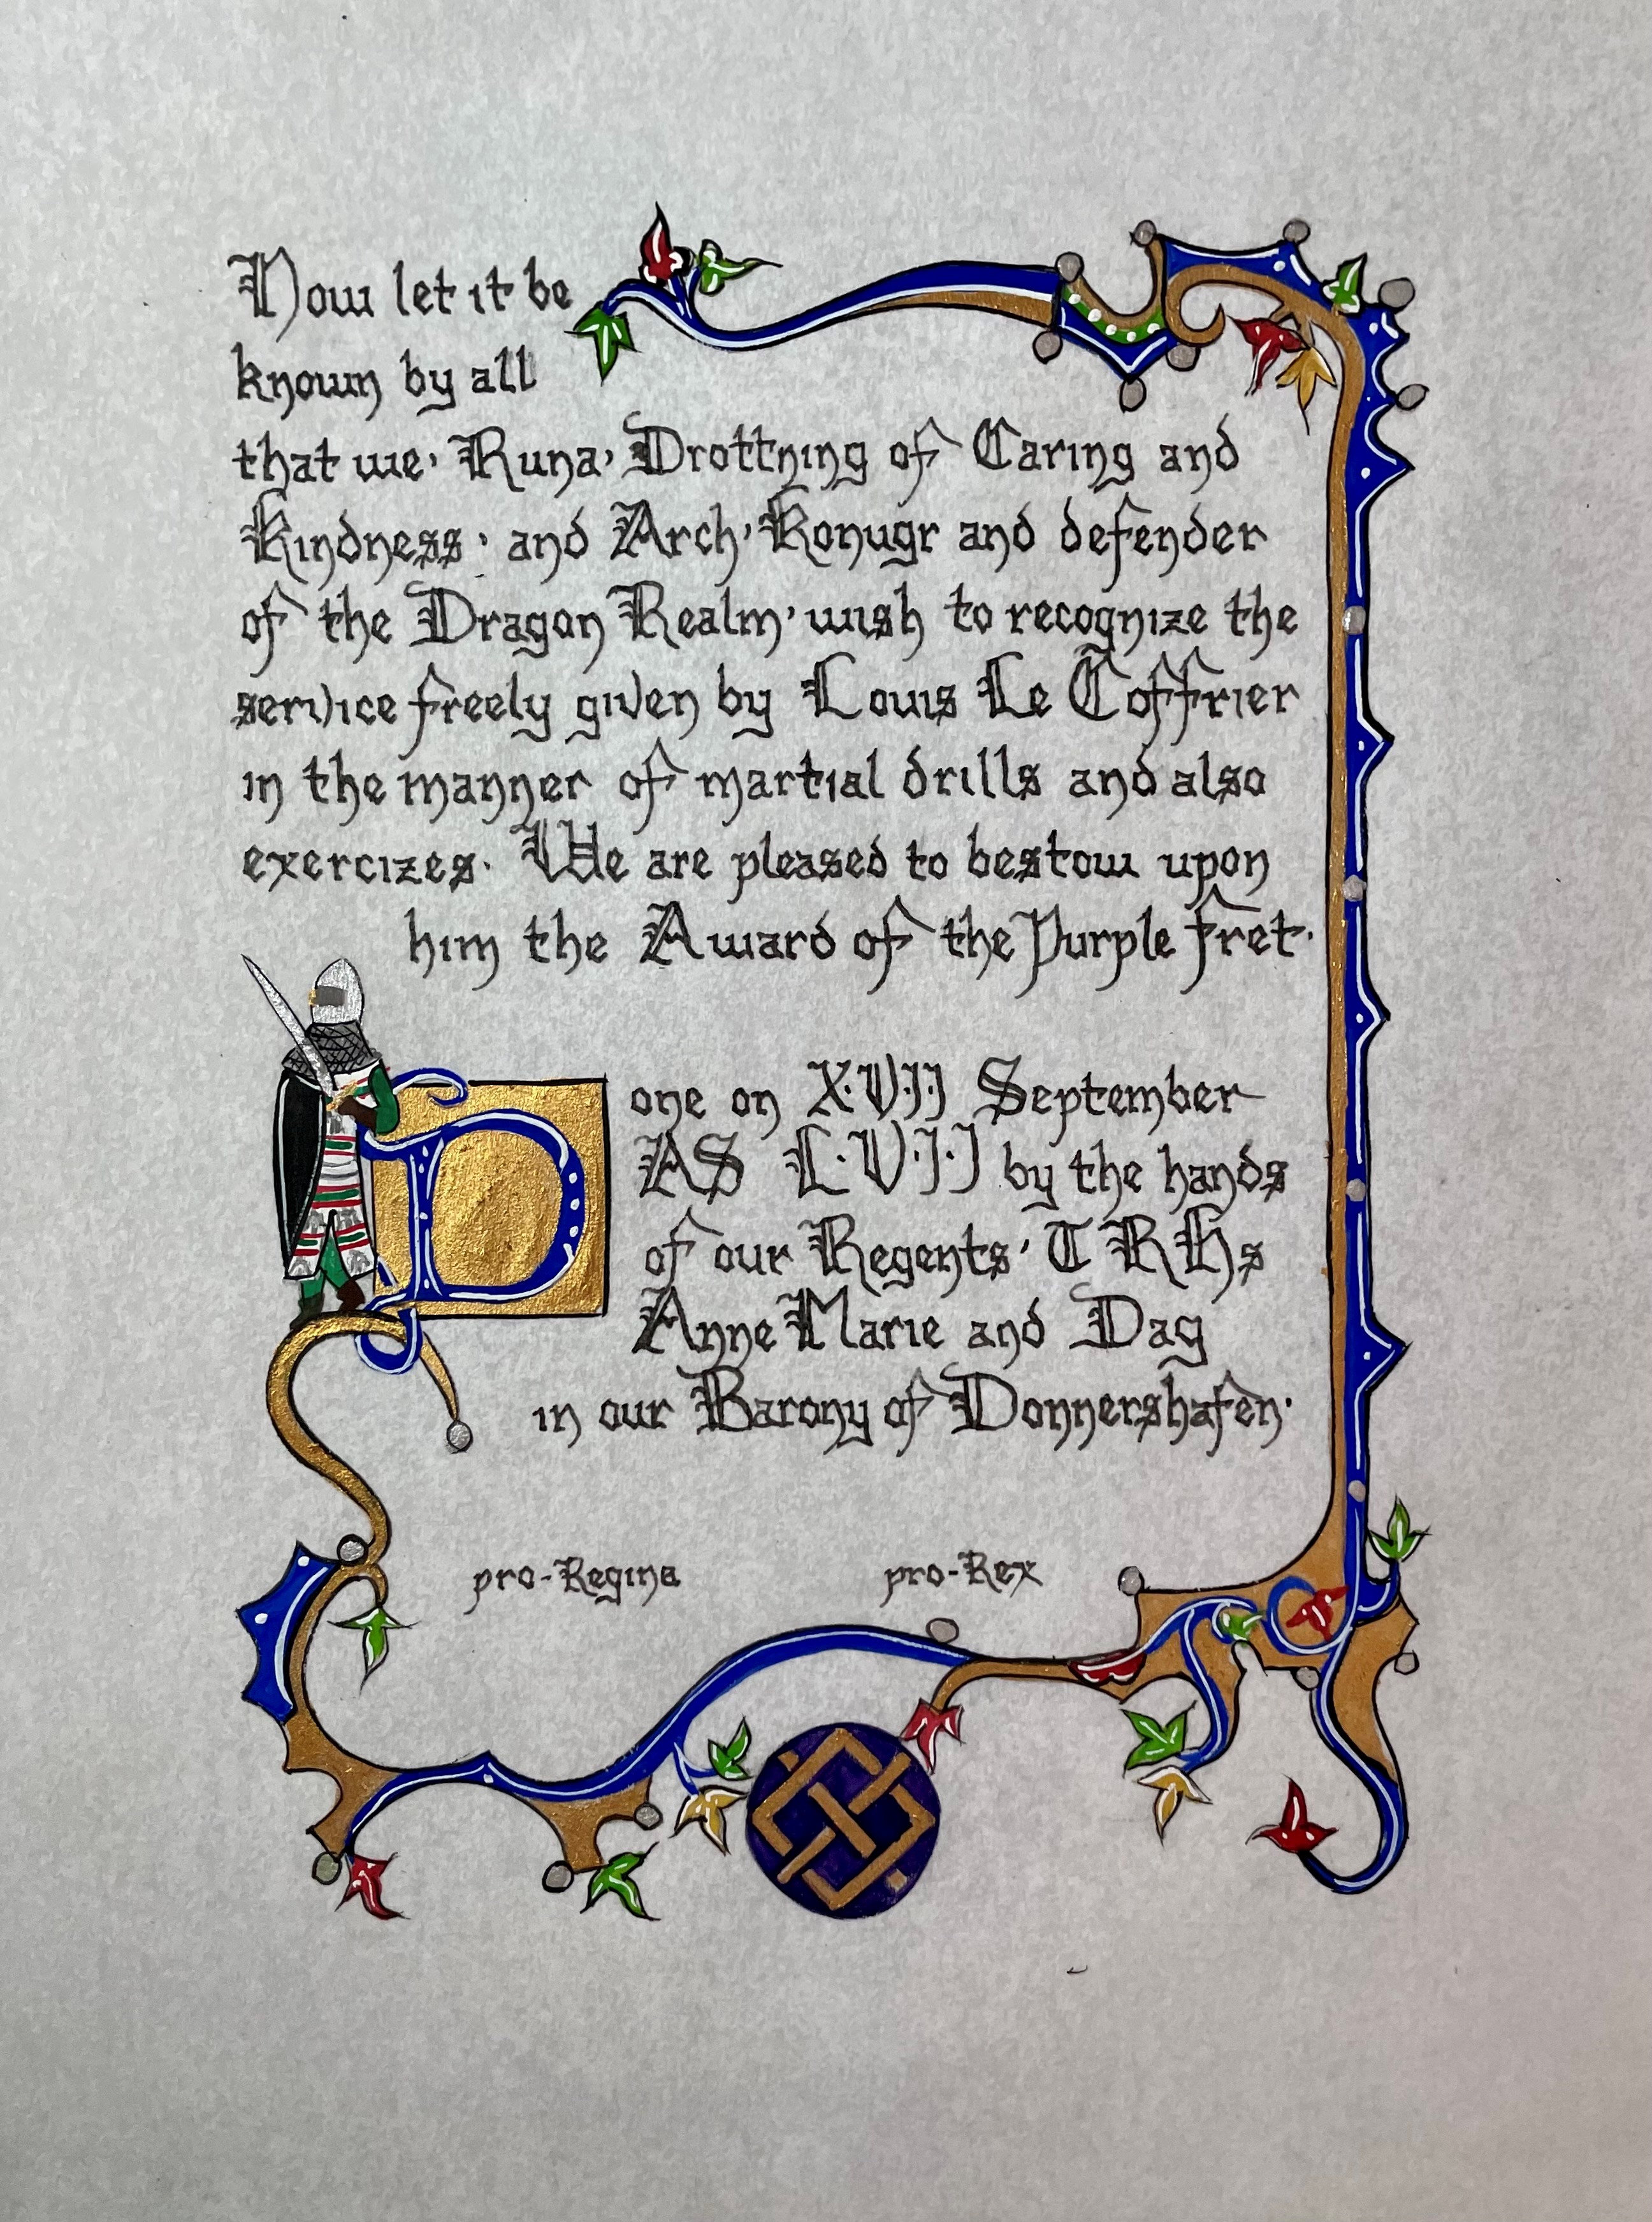 Now let it be
known by all
that we, Runa, Drottning of Caring and
Kindness, and Arch, Konugr and defender
of the Dragon Realm, wish to recognize the
service freely given by Louis Le Coffrier
in the manner of martial drills and also
exercizes. We are pleased to bestow upon
him the Award of the Purple fret.
Done on X·V·I·I September
AS L·V·I·I by the hands
of our Regents, TRHs
Anne Marie and Dag
in our Barony of Donnershafen.
pro-Regina pro-Rex